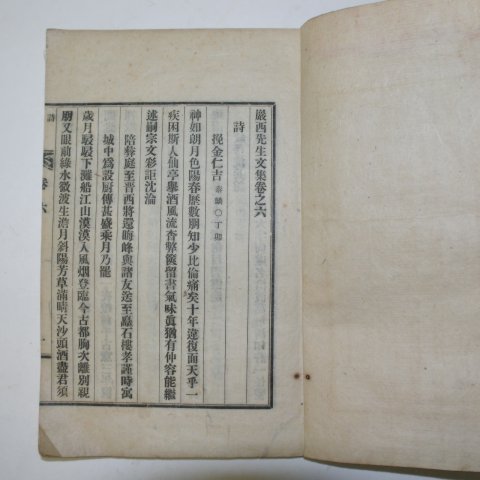 巖西先生文集卷之六
詩
挽金仁吉 泰鎭○丁卯
神如朗月色陽春歷數朋知少比倫痛矣十年違復面天乎一
疾困斯人仙亭擧酒風流杳弊篋留書氣味眞猶有仲容能繼
述嗣宗文彩詎沈淪
陪彜庭至晋西將還晦峰與諸友送至矗石樓孝謹時寓
城中爲設厨傳甚盛乘月乃罷
歲月駸駸下灘船江山漠漠入風烟登臨今古都胸次離別親
朋又眼前綠水微波生澹月斜陽芳草滿晴天沙頭酒盡君須
詩
卷六
一